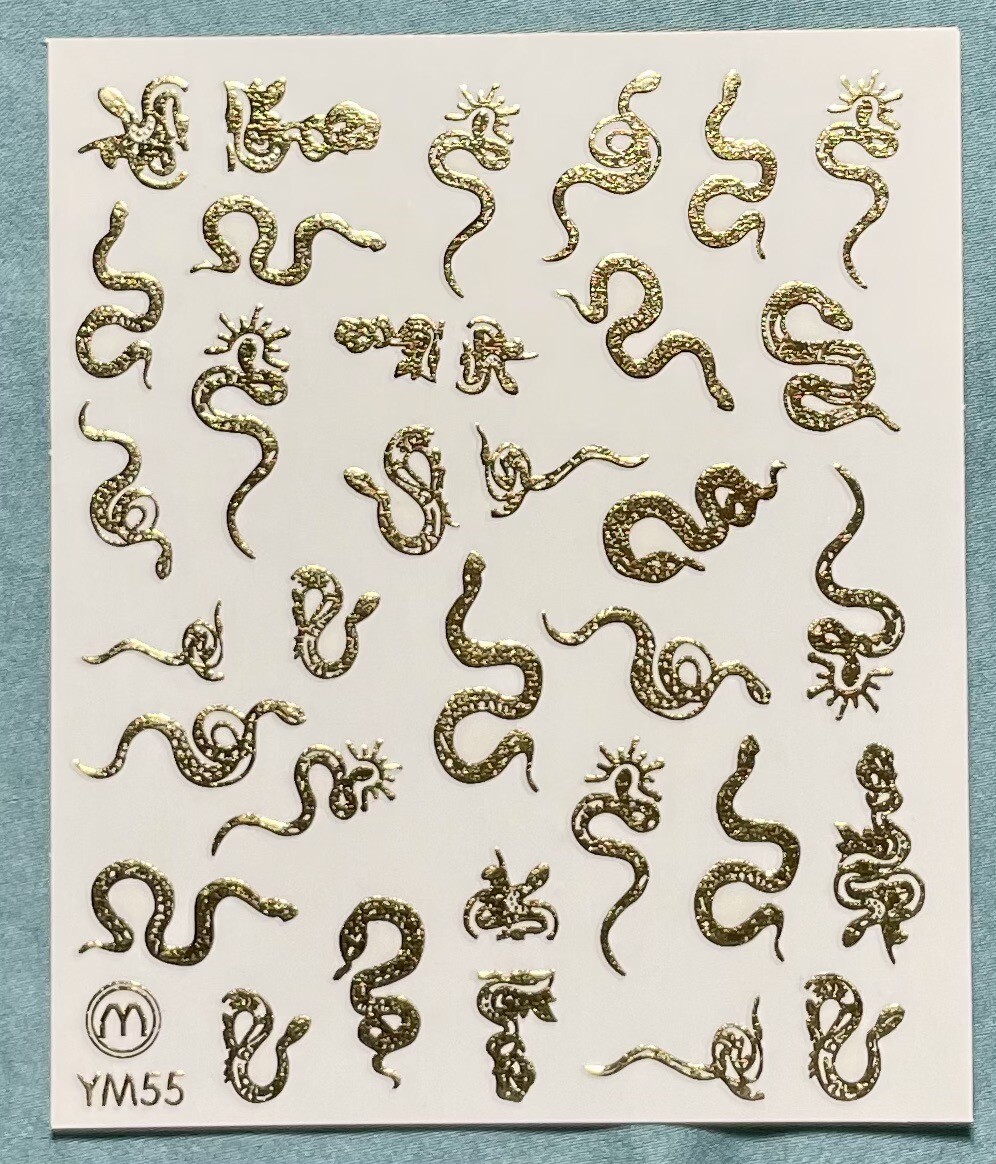 M
YM55